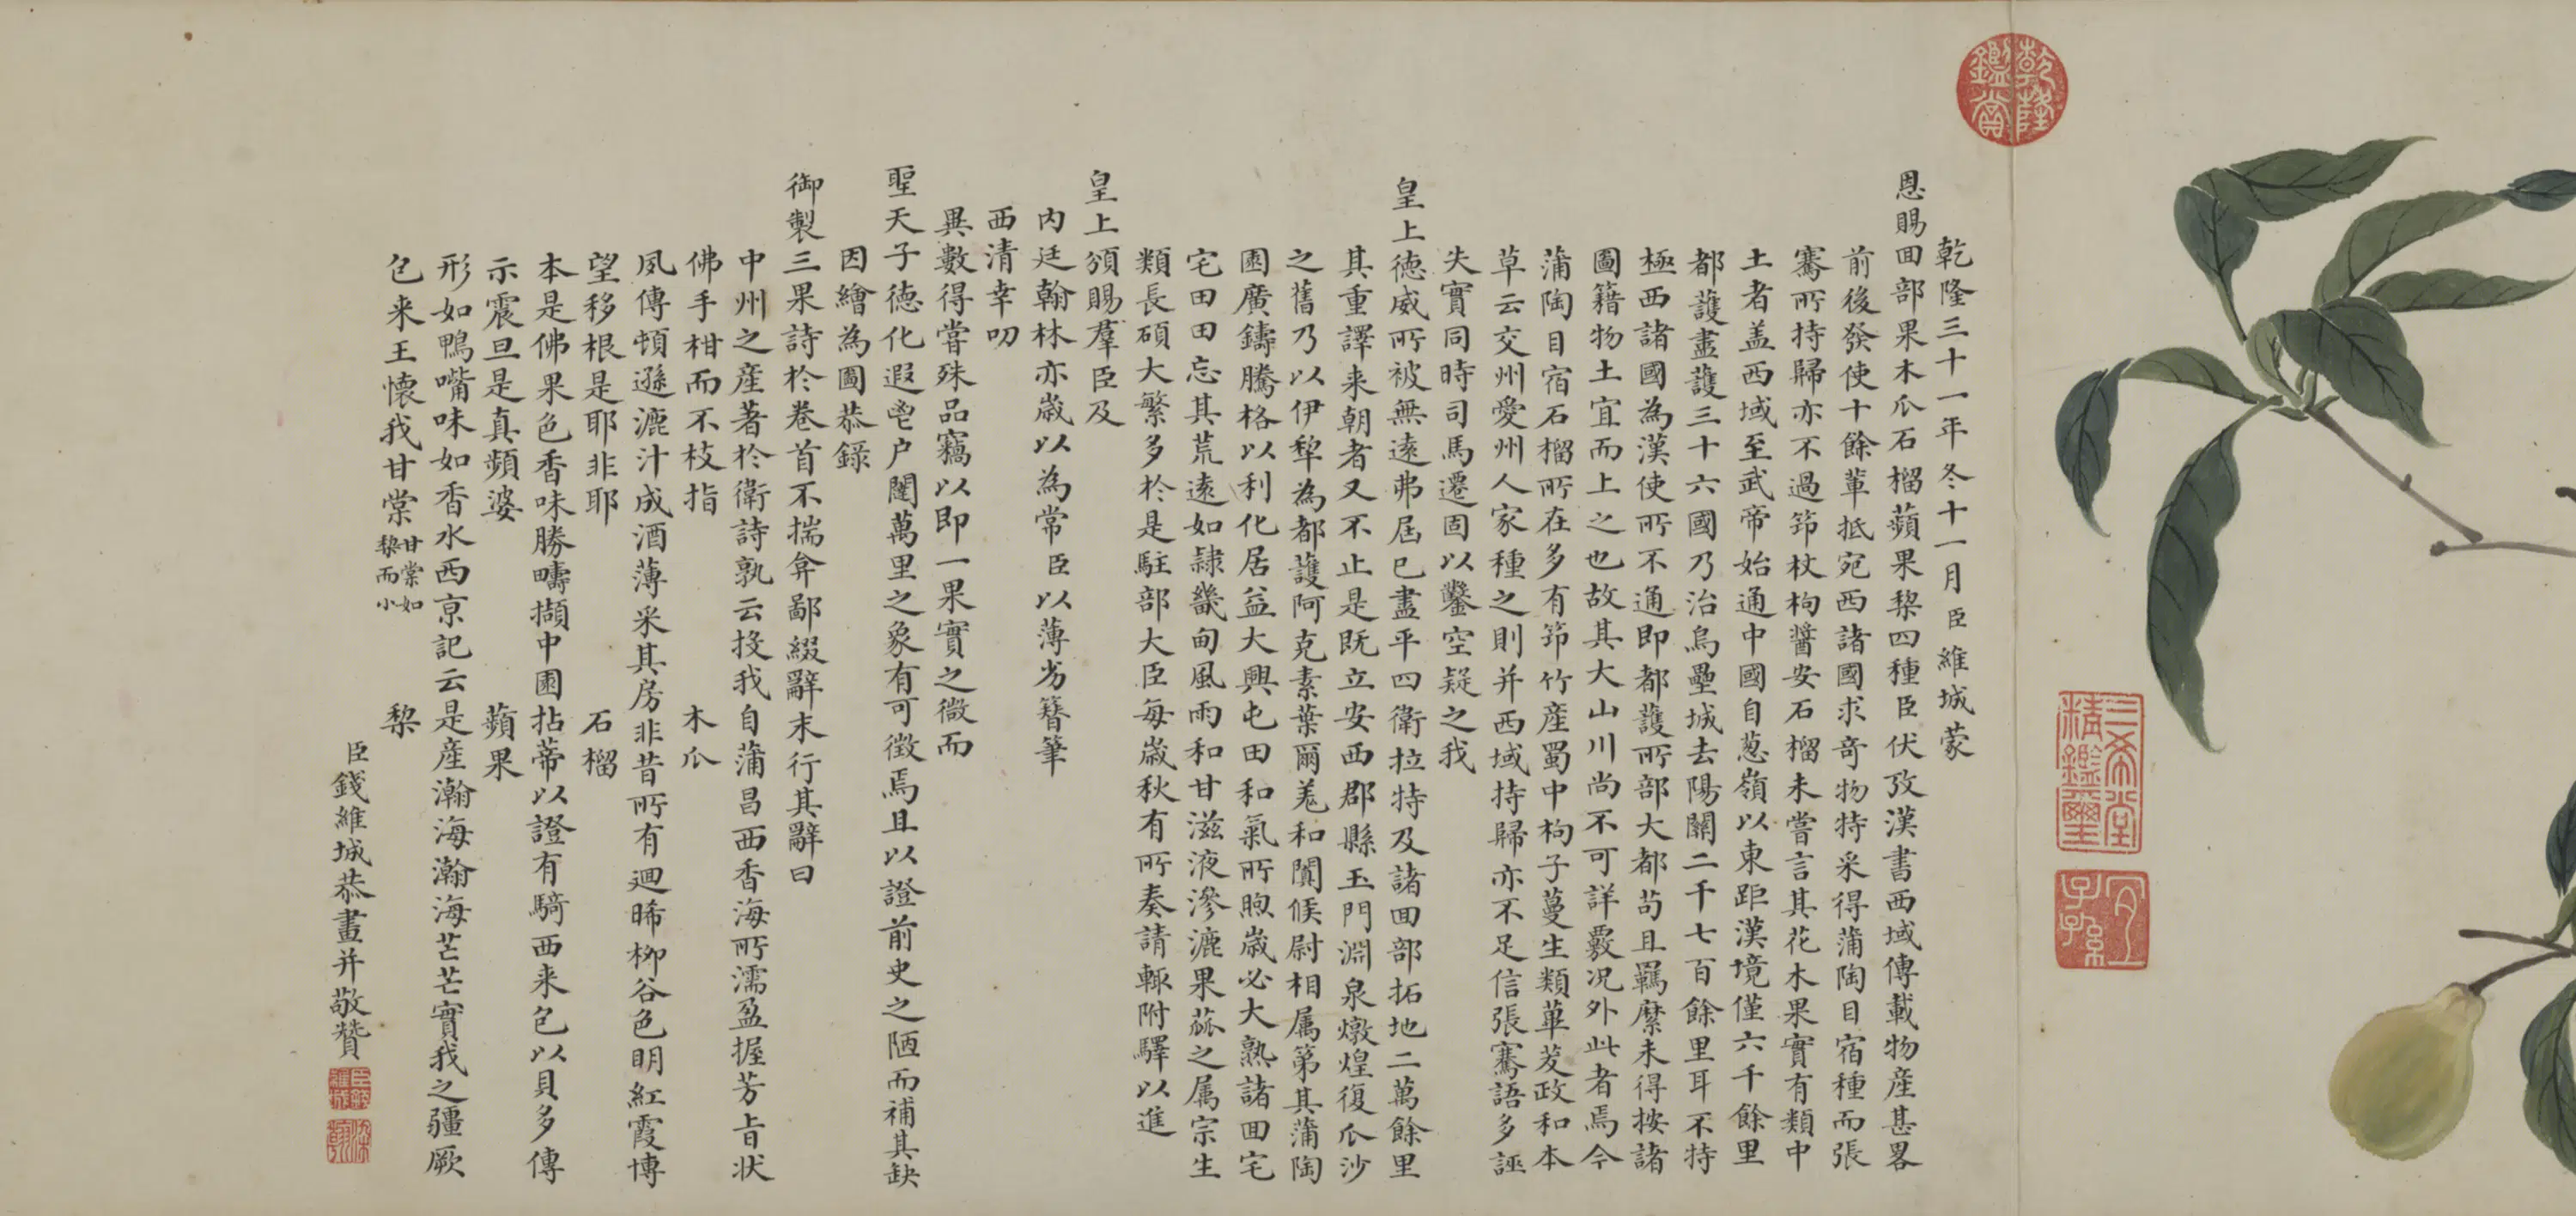 乾隆三十一年冬十一月臣維城蒙
恩賜回部果木瓜石榴蘋果棃四種臣伏攷漢書西域傳載物產甚畧
前後發使十餘軰抵宛西諸國求奇物特采得蒲陶目宿種而張
騫所持歸亦不過笻杖枸醬安石榴未嘗言其花木果實有類中
土者盖西域至武帝始通中國自葱嶺以東距漢境僅六千餘里
都護盡護三十六國乃治烏壘城去陽關二千七百餘里耳不特
極西諸國為漢使所不通即都護所部大都茍且羈縻未得按諸
圖籍物土宜而上之也故其大山川尚不可詳覈况外此者焉今
蒲陶目宿石榴所在多有笻竹產蜀中枸子蔓生類蓽茇政和本
草云交州愛州人家種之則并西域持歸亦不足信張騫語多誣
失實同時司馬遷固以鑿空疑之我
皇上德威所被無遠弗屆已盡平四衛拉特及諸回部拓地二萬餘里
其重譯来朝者又不止是既立安西郡縣玉門淵泉燉煌復瓜沙
之舊乃以伊犂為都護阿克素葉爾羌和闐候尉相属第其蒲陶
園廣鑄騰格以利化居益大興屯田和氣所煦嵗必大熟諸回宅
宅田田忘其荒遠如隷畿甸風雨和甘滋液滲漉果蓏之属宗生
類長碩大繁多於是駐部大臣每嵗秋有所奏請輙附驛以進
皇上頒賜羣臣及
內廷翰林亦嵗以為常臣以薄劣簪筆
西清幸叨
異數得嘗殊品竊以即一果實之微而
聖天子德化遐鬯户闥萬里之象有可徵焉且以證前史之陋而補其缺
因繪為圖恭錄
御製三果詩於卷首不揣弇鄙綴辭末行其辭曰
中州之產著於衛詩孰云投我自蒲昌西香海所濡盈握芳旨状
佛手柑而不枝指 木瓜
夙傳頓遜漉汁成酒薄采其房非昔所有迴晞柳谷色明紅霞博
望移根是耶非耶 石榴
本是佛果色香味勝疇擷中園拈蒂以證有騎西来包以貝多傳
示震旦是真頻婆 蘋果
形如鴨嘴味如香水西亰記云是產瀚海瀚海芒芒實我之疆厥
包来王懐我甘棠甘棠如棃而小 棃
臣錢維城恭畫并敬贊
乾隆鑑賞
三希堂精鑑璽
宜子孫
臣錢維城